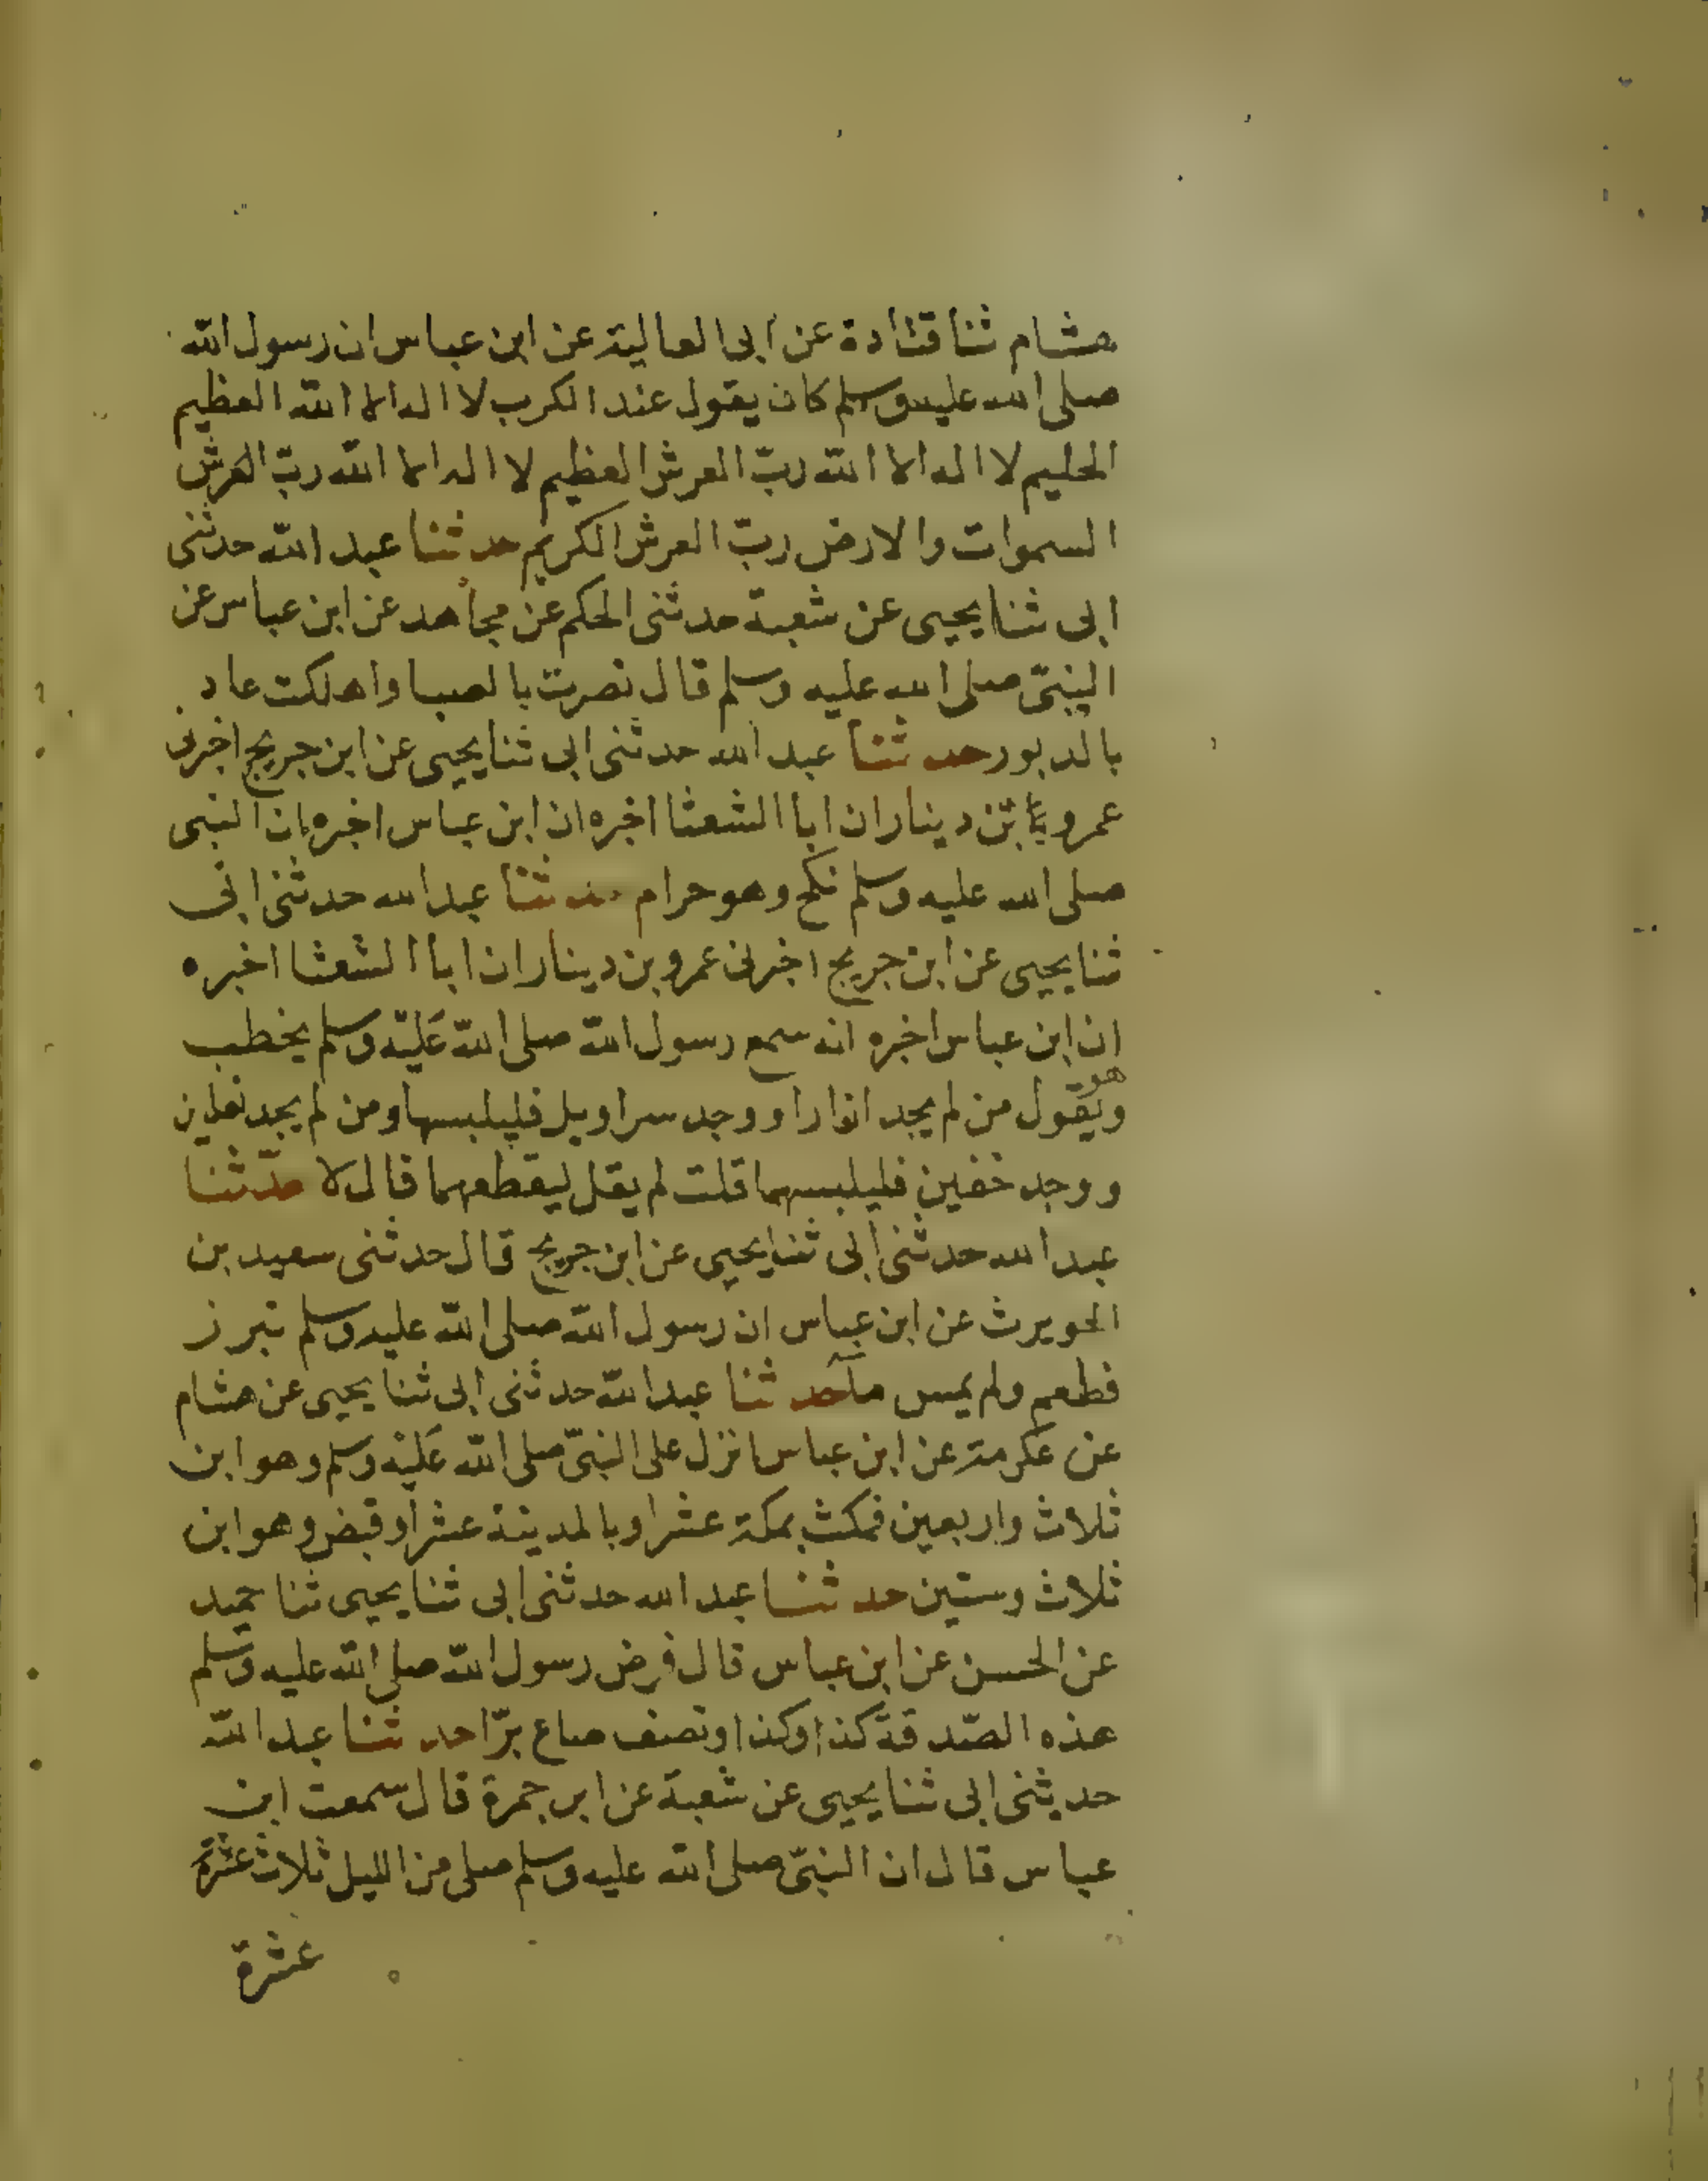 هشام ثنا قتادة عن ابى العالية عن ابن عباس ان رسول الله
صلى الله عليه وسلم كان يقول عند الكرب لا اله الا الله العظيم
الحليم لا اله الا الله ربّ العرش العظيم لا اله الا الله ربّ العرش
السموات والارض ربّ العرش الكريم حدثنا عبد الله حدثنى
ابى ثنا يحيى عن شعبة حدثنى الحكم عن مجاهد عن ابن عباس عن
النبىّ صلى الله عليه وسلم قال نصرت بالصبا واهلكت عاد
بالدبور حدثنا عبد الله حدثنى ابى ثنا يحيى عن ابن جريج اخبرنى
عمرو بن دينار ان ابا الشعثا اخبره ان ابن عباس اخبره ان النبى
صلى الله عليه وسلم نكح وهو حرام حدثنا عبد الله حدثنى ابى
ثنا يحيى عن ابن جريج اخبرنى عمرو بن دينار ان ابا الشعثا اخبره
ان ابن عباس اخبره انه سمع رسول الله صلى الله عَليْه وسلم يخطب
وهو يقول من لم يجد ازارا ووجد سراويل فليلبسها ومن لم يجد نعلين
ووجد خفين فليلبسهما قلت لم يقل ليقطعهما قال لا حدّثنا
عبد الله حدثنى ابى ثنا يحيى عن ابن جريج قال حدثنى سعيد بن
الحويرث عن ابن عباس ان رسول الله صلى الله عليه وسلم تبرز
فطعم ولم يمس مآ حدثنا عبد الله حدثنى ابى ثنا يحيى عن هشام
عن عكرمة عن ابن عباس انزل على النبىّ صلى الله عَليْه وسلم وهو ابن
ثلاث واربعين فمكث بمكة عشرا وبالمدينة عشرا وقبض وهو ابن
ثلاث وستين حدثنا عبد الله حدثنى ابى ثنا يحيى ثنا حميد
عن الحسن عن ابن عباس قال فرض رسول الله صلى الله عليه وسلم
هذه الصّدقة كذا وكذا ونصف صاع برّا حدثنا عبد الله
حدثنى ابى ثنا يحيى عن شعبة عن ابو جمرة قال سمعت ابن
عباس قال ان النبىّ صلى الله عليه وسلم صلى من الليل ثلاث عشرة
عشرة